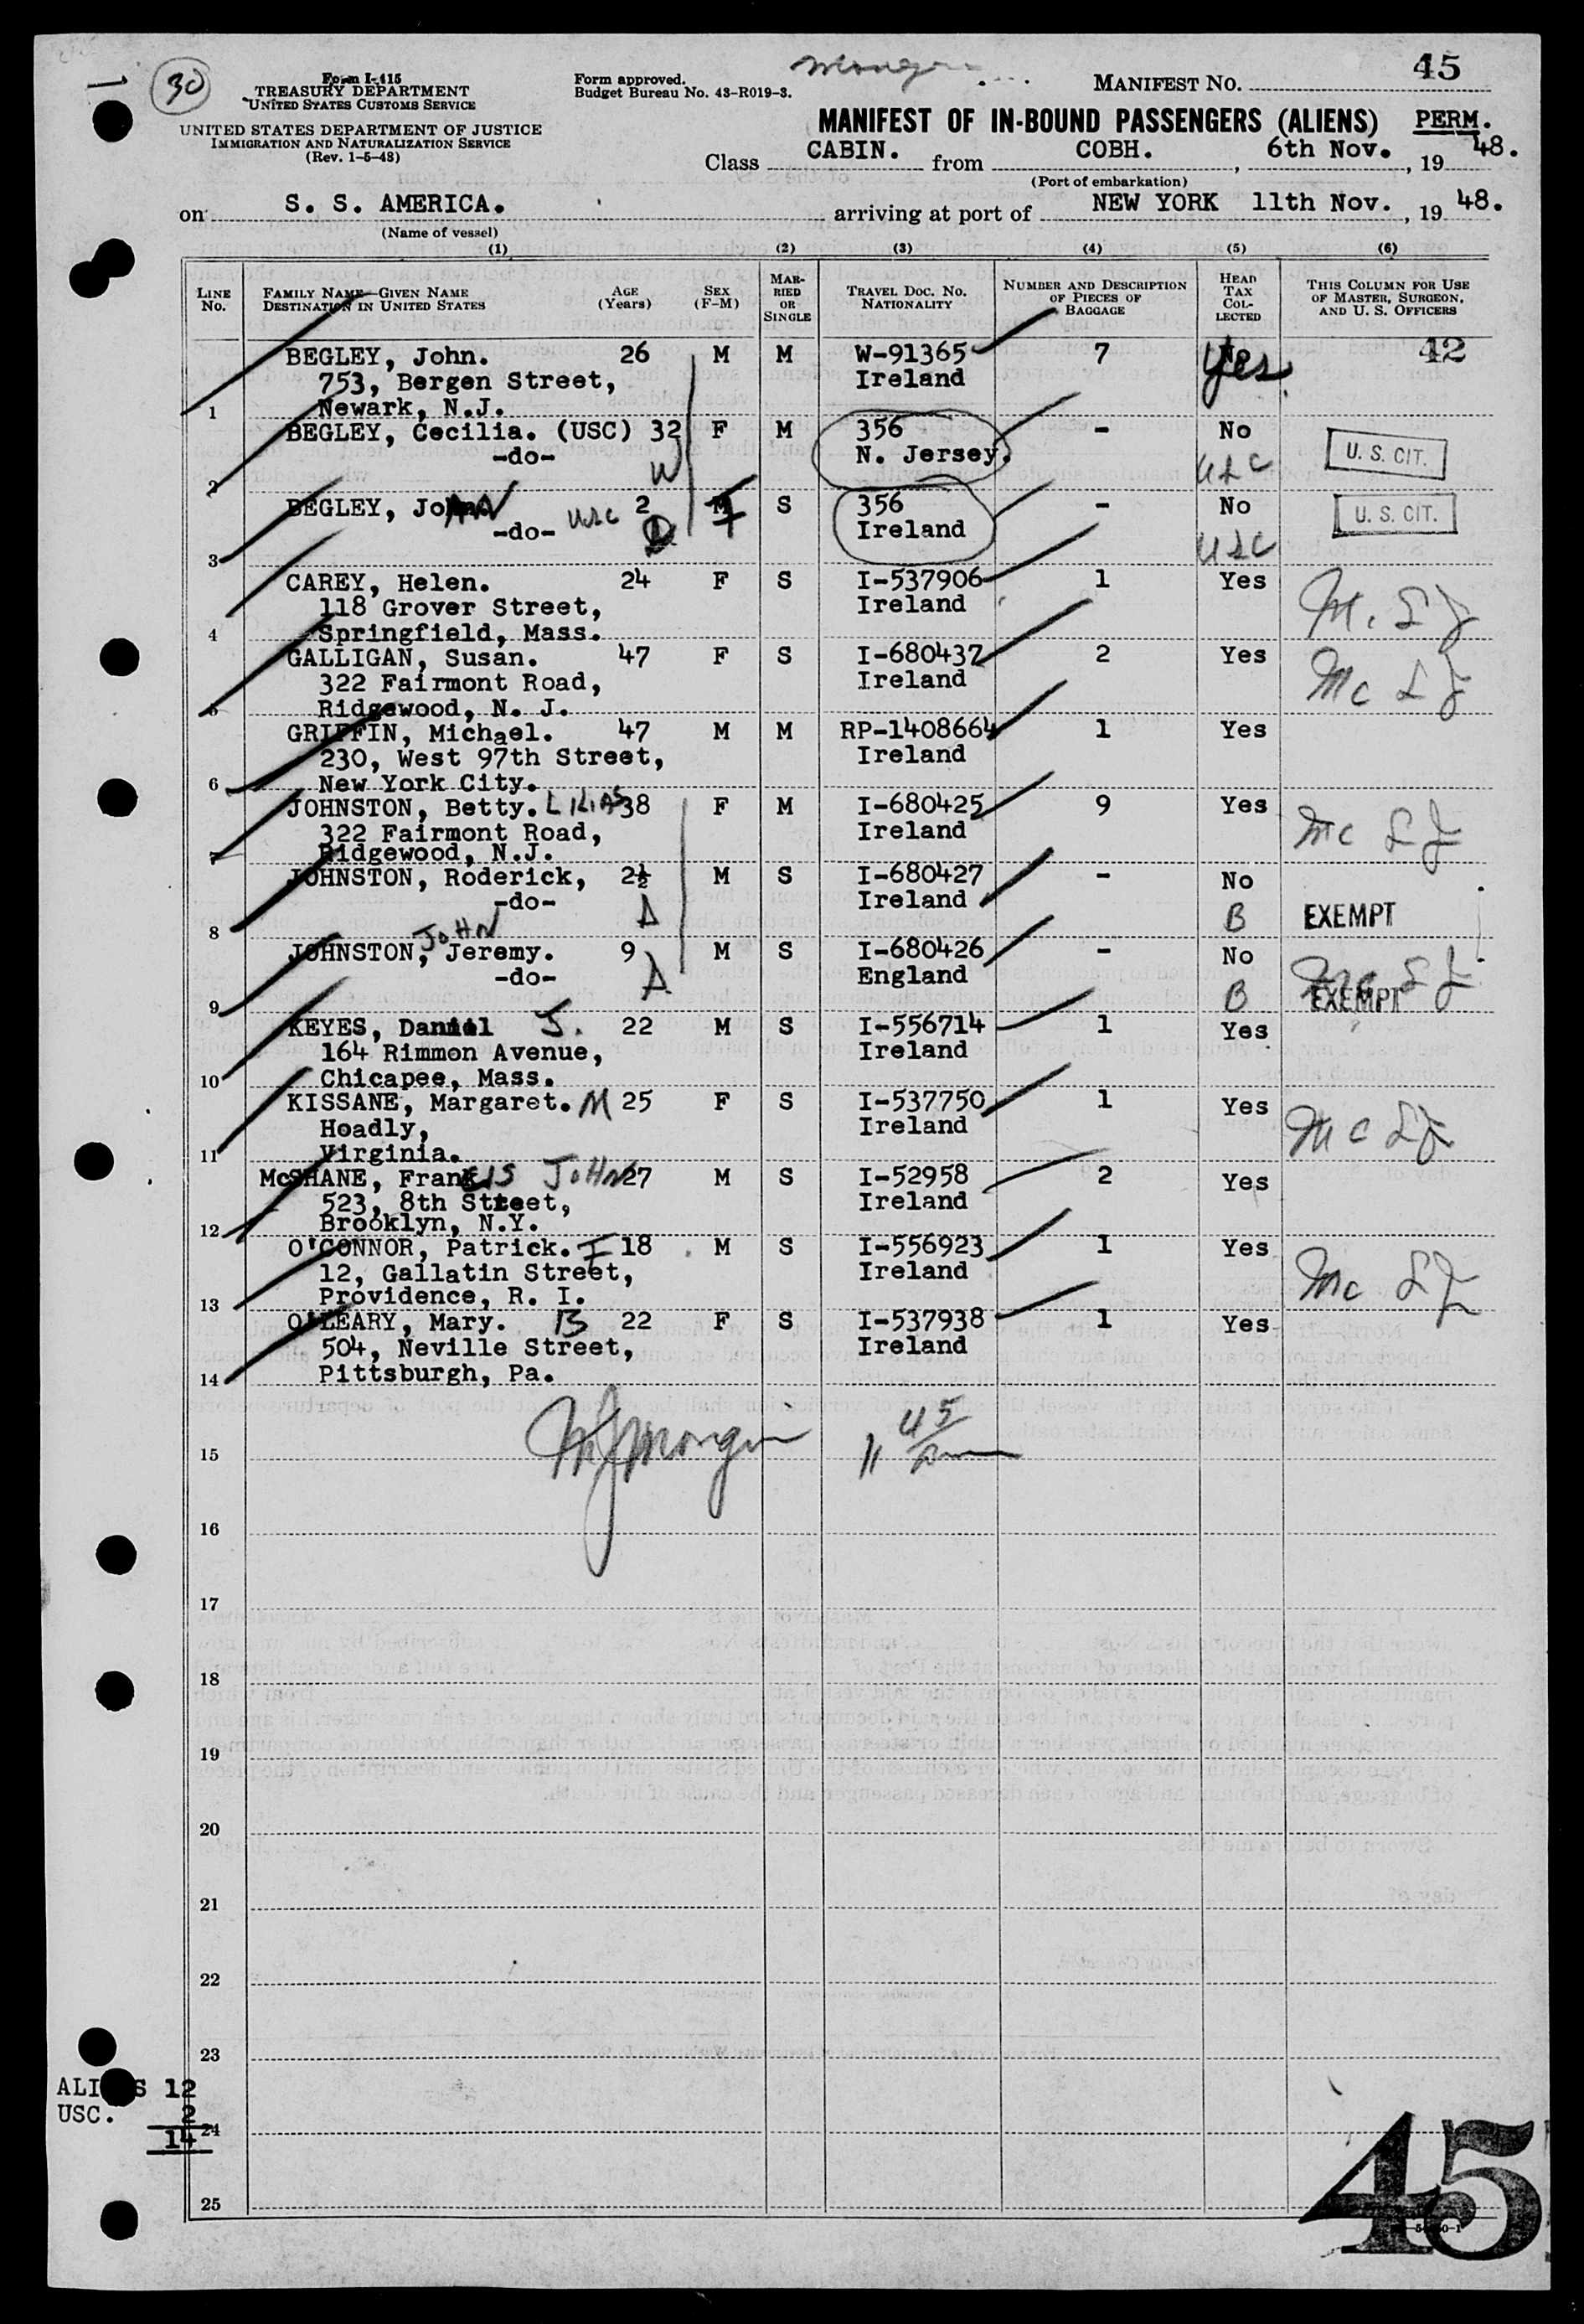 45
30
Form I-415
TREASURY DEPARTMENT
UNITED STATES CUSTOMS SERVICE
UNITED STATES DEPARTMENT OF JUSTICE
IMMIGRATION AND NATURALIZATION SERVICE
(Rev. 1-5-48)
Form approved.
Budget Bureau No. 43-R019-3.
MANIFEST NO.
MANIFEST OF IN-BOUND PASSENGERS (ALIENS) PERM.
Class CABIN. from COBH. , 6th Nov. , 19 48.
(Port of embarkation)
on S. S. AMERICA. arriving at port of NEW YORK 11th Nov. , 19 48.
(Name of vessel)
(1) (2) (3) (4) (5) (6)
LINE No. FAMILY NAME—GIVEN NAME DESTINATION IN UNITED STATES AGE (Years) SEX (F-M) MARRIED OR SINGLE TRAVEL DOC. NO. NATIONALITY NUMBER AND DESCRIPTION OF PIECES OF BAGGAGE HEAD TAX COLLECTED THIS COLUMN FOR USE OF MASTER, SURGEON, AND U. S. OFFICERS
BEGLEY, John. 26 M M W-91365 7 Yes 42
753, Bergen Street, Ireland
1 Newark, N.J.
BEGLEY, Cecilia. (USC) 32 F M 356 - No U. S. CIT.
-do- W N. Jersey. USC
2
BEGLEY, Joann usc 2 F S 356 - No U. S. CIT.
-do- Ireland USC
3
CAREY, Helen. 24 F S I-537906 1 Yes
118 Grover Street, Ireland
4 Springfield, Mass.
GALLIGAN, Susan. 47 F S I-680437 2 Yes
322 Fairmont Road, Ireland
5 Ridgewood, N. J.
GRIFFIN, Michael. 47 M M RP-1408664 1 Yes
230, West 97th Street, Ireland
6 New York City.
JOHNSTON, Betty. LILIAS 38 F M I-680425 9 Yes
322 Fairmont Road, Ireland
7 Ridgewood, N.J.
JOHNSTON, Roderick, 2½ M S I-680427 - No
-do- Ireland B EXEMPT
8
JOHNSTON, JOHN Jeremy. 9 M S I-680426 - No
-do- England B EXEMPT
9
KEYES, Daniel J. 22 M S I-556714 1 Yes
164 Rimmon Avenue, Ireland
10 Chicapee, Mass.
KISSANE, Margaret. M 25 F S I-537750 1 Yes
Hoadly, Ireland
11 Virginia.
McSHANE, Francis JOHN 27 M S I-52958 2 Yes
523, 8th Street, Ireland
12 Brooklyn, N.Y.
O'CONNOR, Patrick. F 18 M S I-556923 1 Yes
12, Gallatin Street, Ireland
13 Providence, R. I.
O'LEARY, Mary. B 22 F S I-537938 1 Yes
504, Neville Street, Ireland
14 Pittsburgh, Pa.
15
16
17
18
19
20
21
22
23
ALIENS 12
USC. 2
14
24
25
45